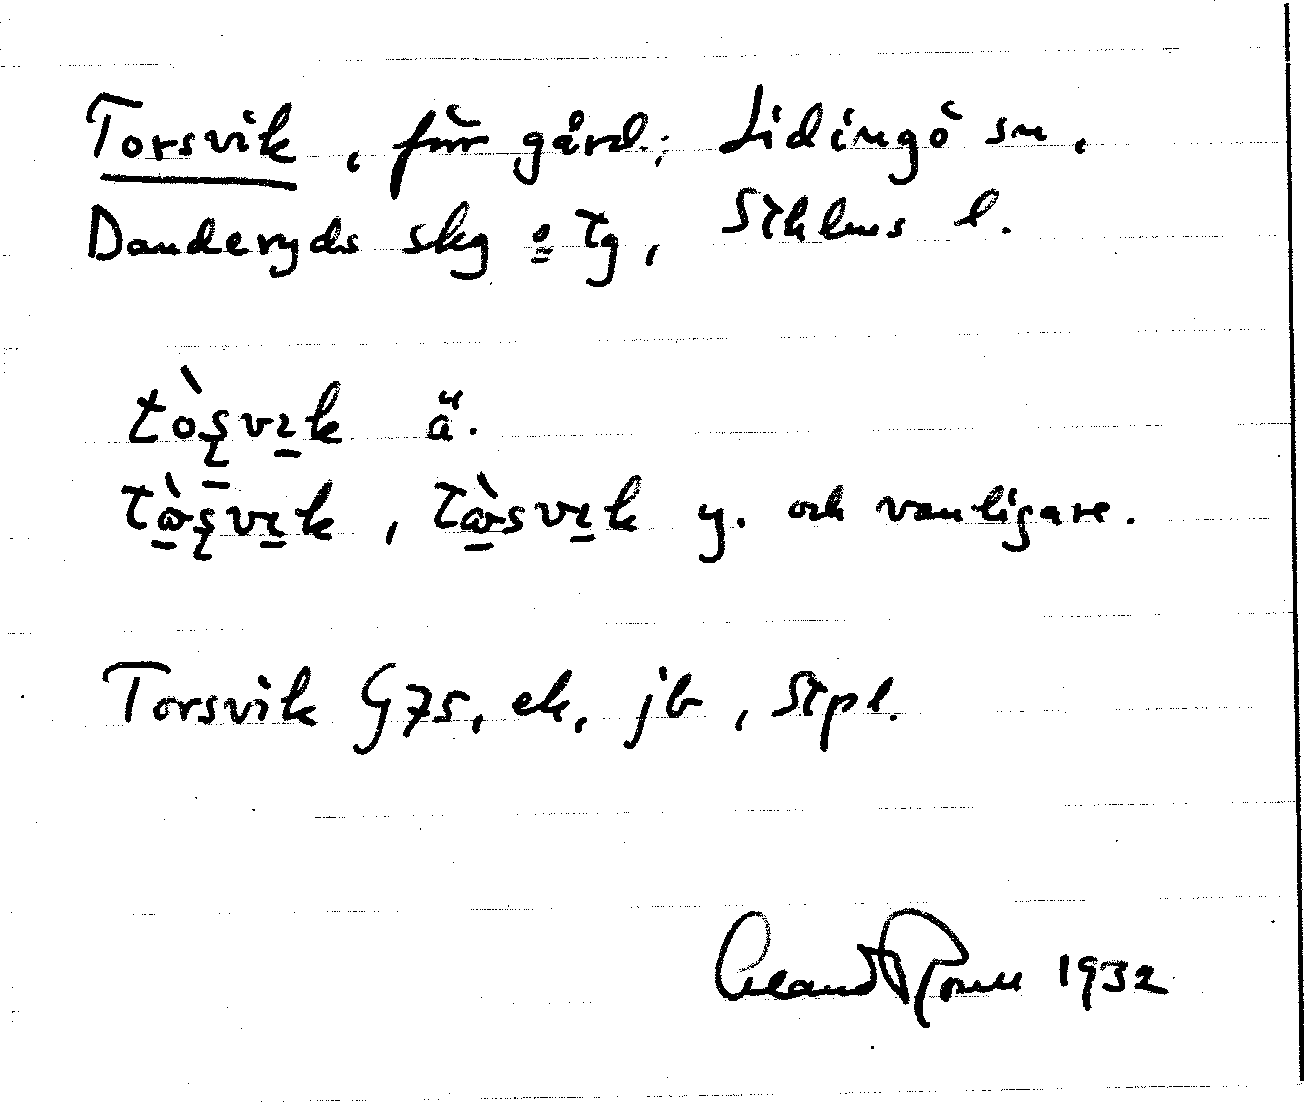 Torsvik, förr gård, Lidingö sn,
Danderyds skg o tg, Sthlms l.
tòʂvɪk ä.
tὼʂvɪk, tὼsvɪk y. och vanligare.
Torsvik G75, ek, jb, Stpl.
1932